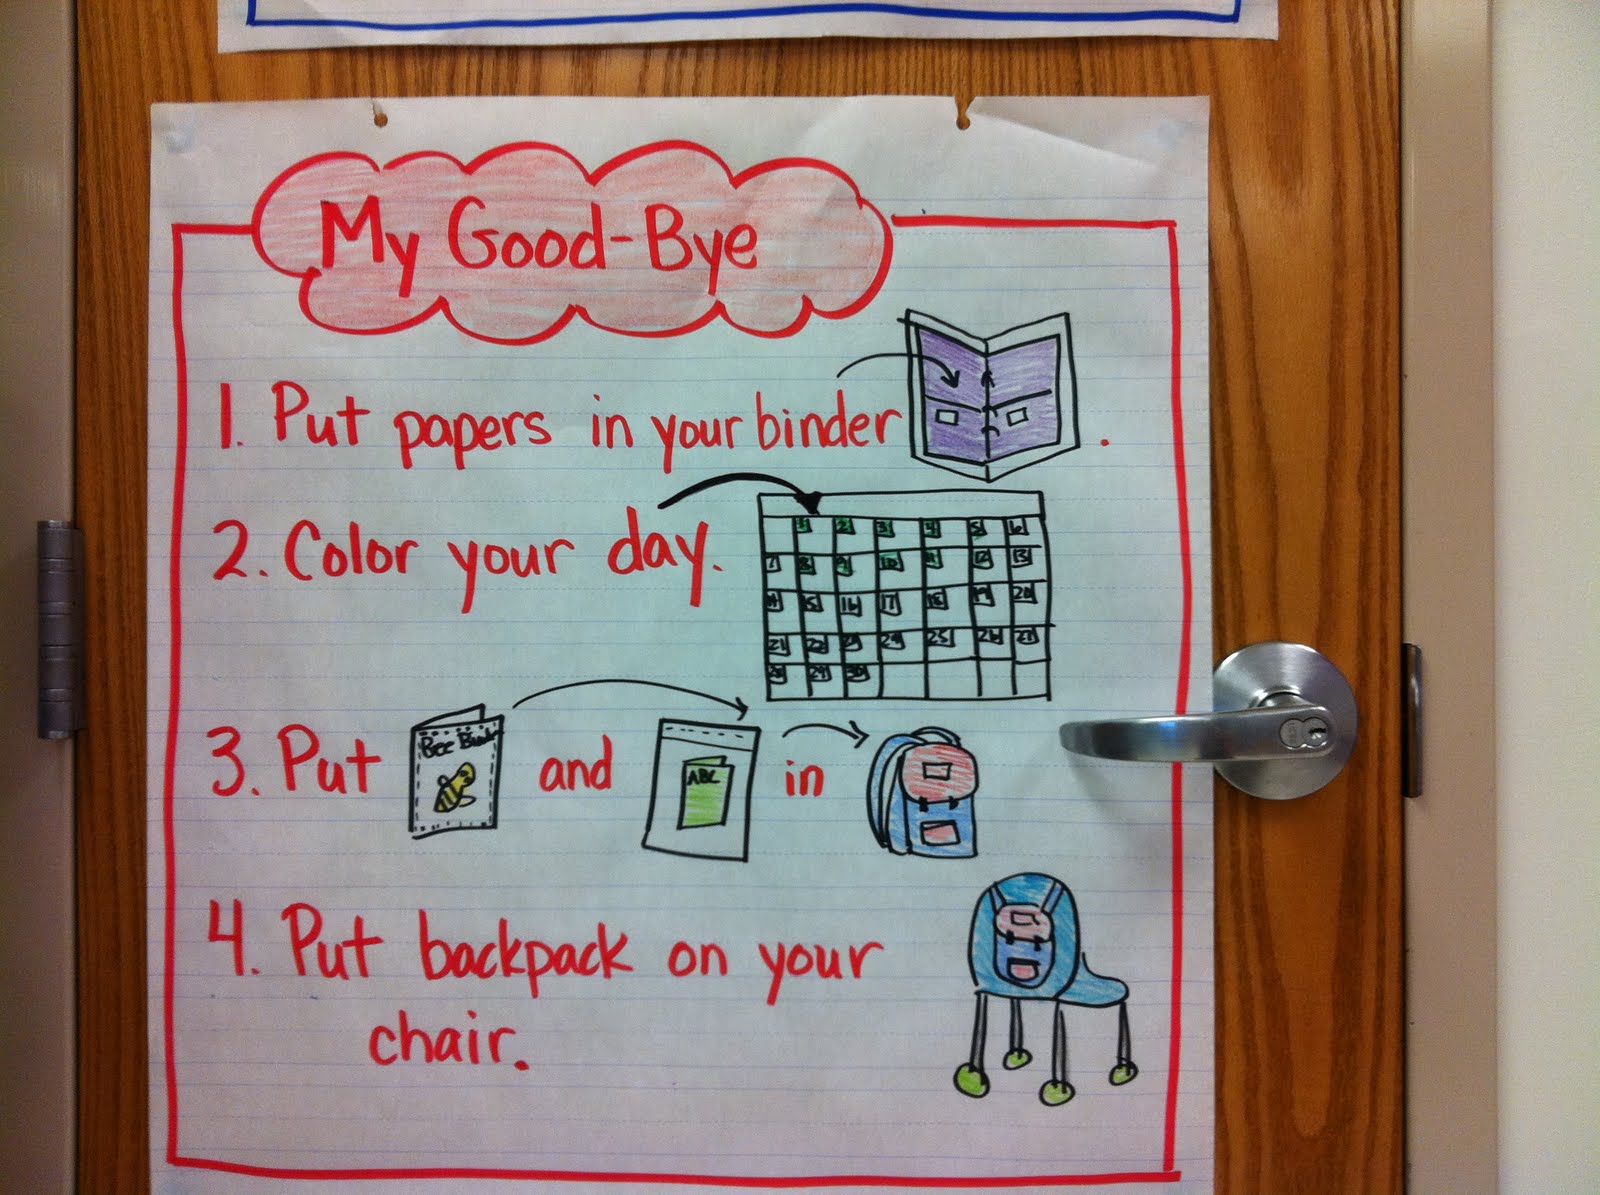 My Good-Bye
1. Put papers in your binder.
2. Color your day.
1 2 3 4 5 6
7 8 9 10 11 12 13
14 15 16 17 18 19 20
21 22 23 24 25 26 27
28 29 30
3. Put and in
Bee
ABC
4. Put backpack on your
chair.